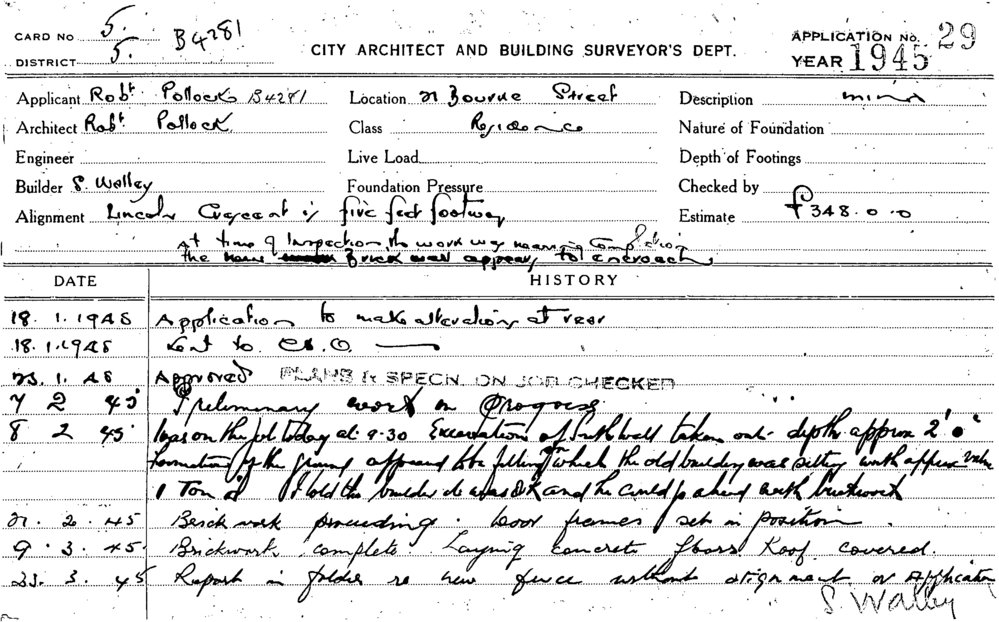 CARD NO 5.
DISTRICT 5. B4281
CITY ARCHITECT AND BUILDING SURVEYOR'S DEPT.
APPLICATION No. 29
YEAR 1945
Applicant Robt Pollock B4281 Location 21 Bourke Street Description minor
Architect Robt Pollock Class Residence Nature of Foundation
Engineer Live Load Depth of Footings
Builder S. Walley Foundation Pressure Checked by
Alignment Lincoln Crescent is five feet footway Estimate £348.0.0
At time of Inspection the work was nearing Completion
the Brick wall appears to encroach
DATE HISTORY
18. 1. 1945 Application to make alterations at rear
18. 1. 1945 Sent to
23. 1. 45 Approved PLANS & SPECN. ON JOB CHECKED
7 2 45 Preliminary work in Progress
8 2 45 was on the job today at 9.30 Excavations of wall taken out depth approx 2' 0"
of the ground appeared to be filling on which the old building was sitting with approx
1 Ton I told the builder and he could go ahead with brickwork
21. 2. 45 Brick work proceeding. Door frames set in position.
9. 3. 45 Brickwork complete. Laying concrete floors Roof covered.
23. 3. 45 Report in folder re new fence without alignment or Application
S. Walley